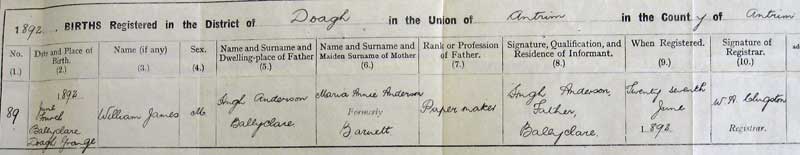 1892 BIRTHS Registered in the District of Doagh in the Union of Antrim in the County of Antrim
No. Date and Place of Birth. Name (if any) Sex. Name and Surname and Dwelling-place of Father Name and Surname and Maiden Surname of Mother Rank or Profession of Father. Signature, Qualification, and Residence of Informant. When Registered. Signature of Registrar.
(1.) (2.) (3.) (4.) (5.) (6.) (7.) (8.) (9.) (10.)
89
1892
June
Fourth
Ballyclare
Doagh Grange
William James
M.
Hugh Anderson
Ballyclare
Maria Annie Anderson
Formerly
Barnett
Paper maker
Hugh Anderson,
Father,
Ballyclare.
Twenty seventh
June
1892
W. A.
Registrar.